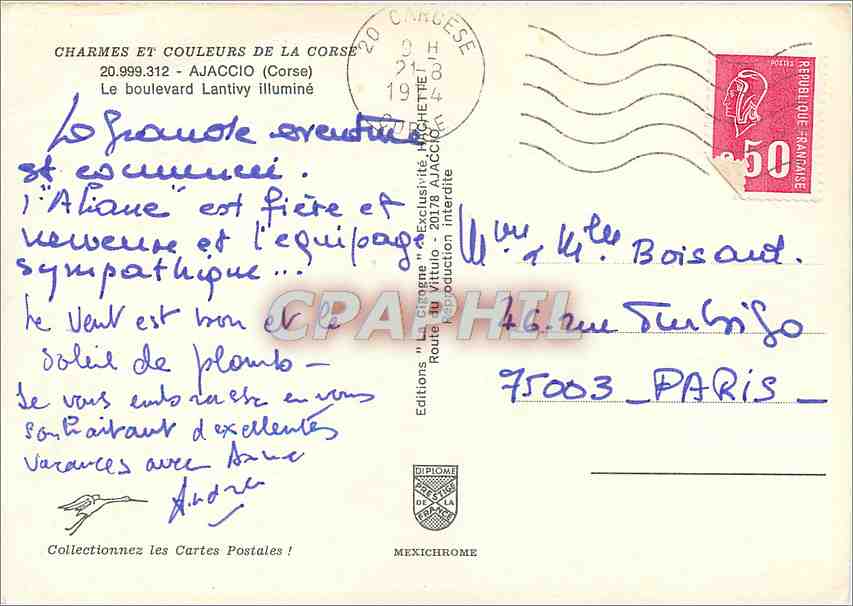 CHARMES ET COULEURS DE LA CORSE
20.999.312 - AJACCIO (Corse)
Le boulevard Lantivy illuminé
La grande aventure
est commenci.
l'"Ariane" est fière et
nerveuse et l'equipage
sympathique...
Le vent est bon et le
soleil de plomb -
Je vous embrasse en vous
souhaitant d'excellentes
vacances avec Anne
André
Collectionnez les Cartes Postales !
Editions "La Cigogne" - Exclusivité HACHETTE
Route du Vittulo - 20178 AJACCIO
Reproduction interdite
CPAPHIL
DIPLOME
PRESTIGE
DE LA
FRANCE
MEXICHROME
20 CARGÈSE
9 H
21-8
1974
CORSE
POSTES
REPUBLIQUE FRANÇAISE
0.50
Mme & Mlle Boisard.
46. rue Turbigo
75003 _ PARIS _